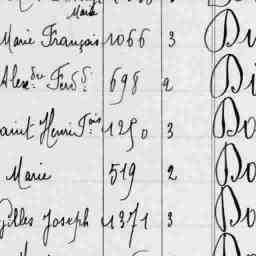 Marie
Marie François 1066 3 Du
Alex.dre Ferd.d 698 2 Di
aint Henri F.ois 1250 3 Do
Marie 519 2 Do
Gilles Joseph 1371 3 Do